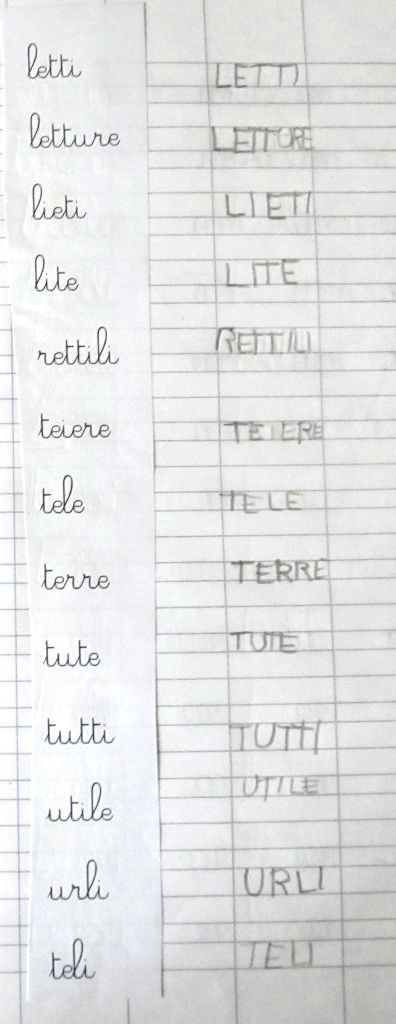 letti LETTI
letture LETTURE
lieti LIETI
lite LITE
rettili RETTILI
teiere TEIERE
tele TELE
terre TERRE
tute TUTE
tutti TUTTI
utile UTILE
urli URLI
teli TELI